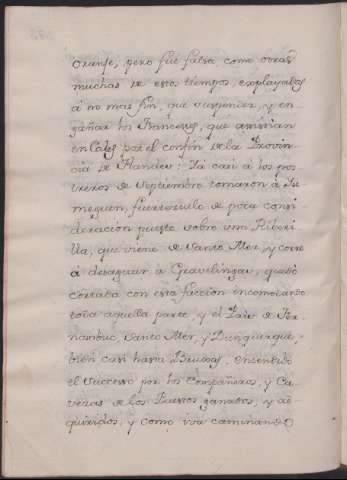 oranse, pero fue falsa como otras
muchas de estos tiempos, explayadas
á no mas fin, que suspender, y en-
gañar los Franceses, que asistian
en Cales por el confin de la Provin-
cia de Flandes: Ya casi á los pos-
treros de Septiembre tomaron á
meguen, fuertezuelo de poca consi-
deracion puesto sobre una Riberi-
lla, que viene de Santo Mer, y corre
á desaguar á Gravelingas, quedó
cortada con esta faccion incomodando
toda aquella parte, y el Pais de
Santo Mer, y Dunquerque,
bien casi hasta Bruxas, entendido
el successo por los Compañeros, y Ca-
vezas de los Puestos ganados, y ad-
quiridos, y como iva caminando